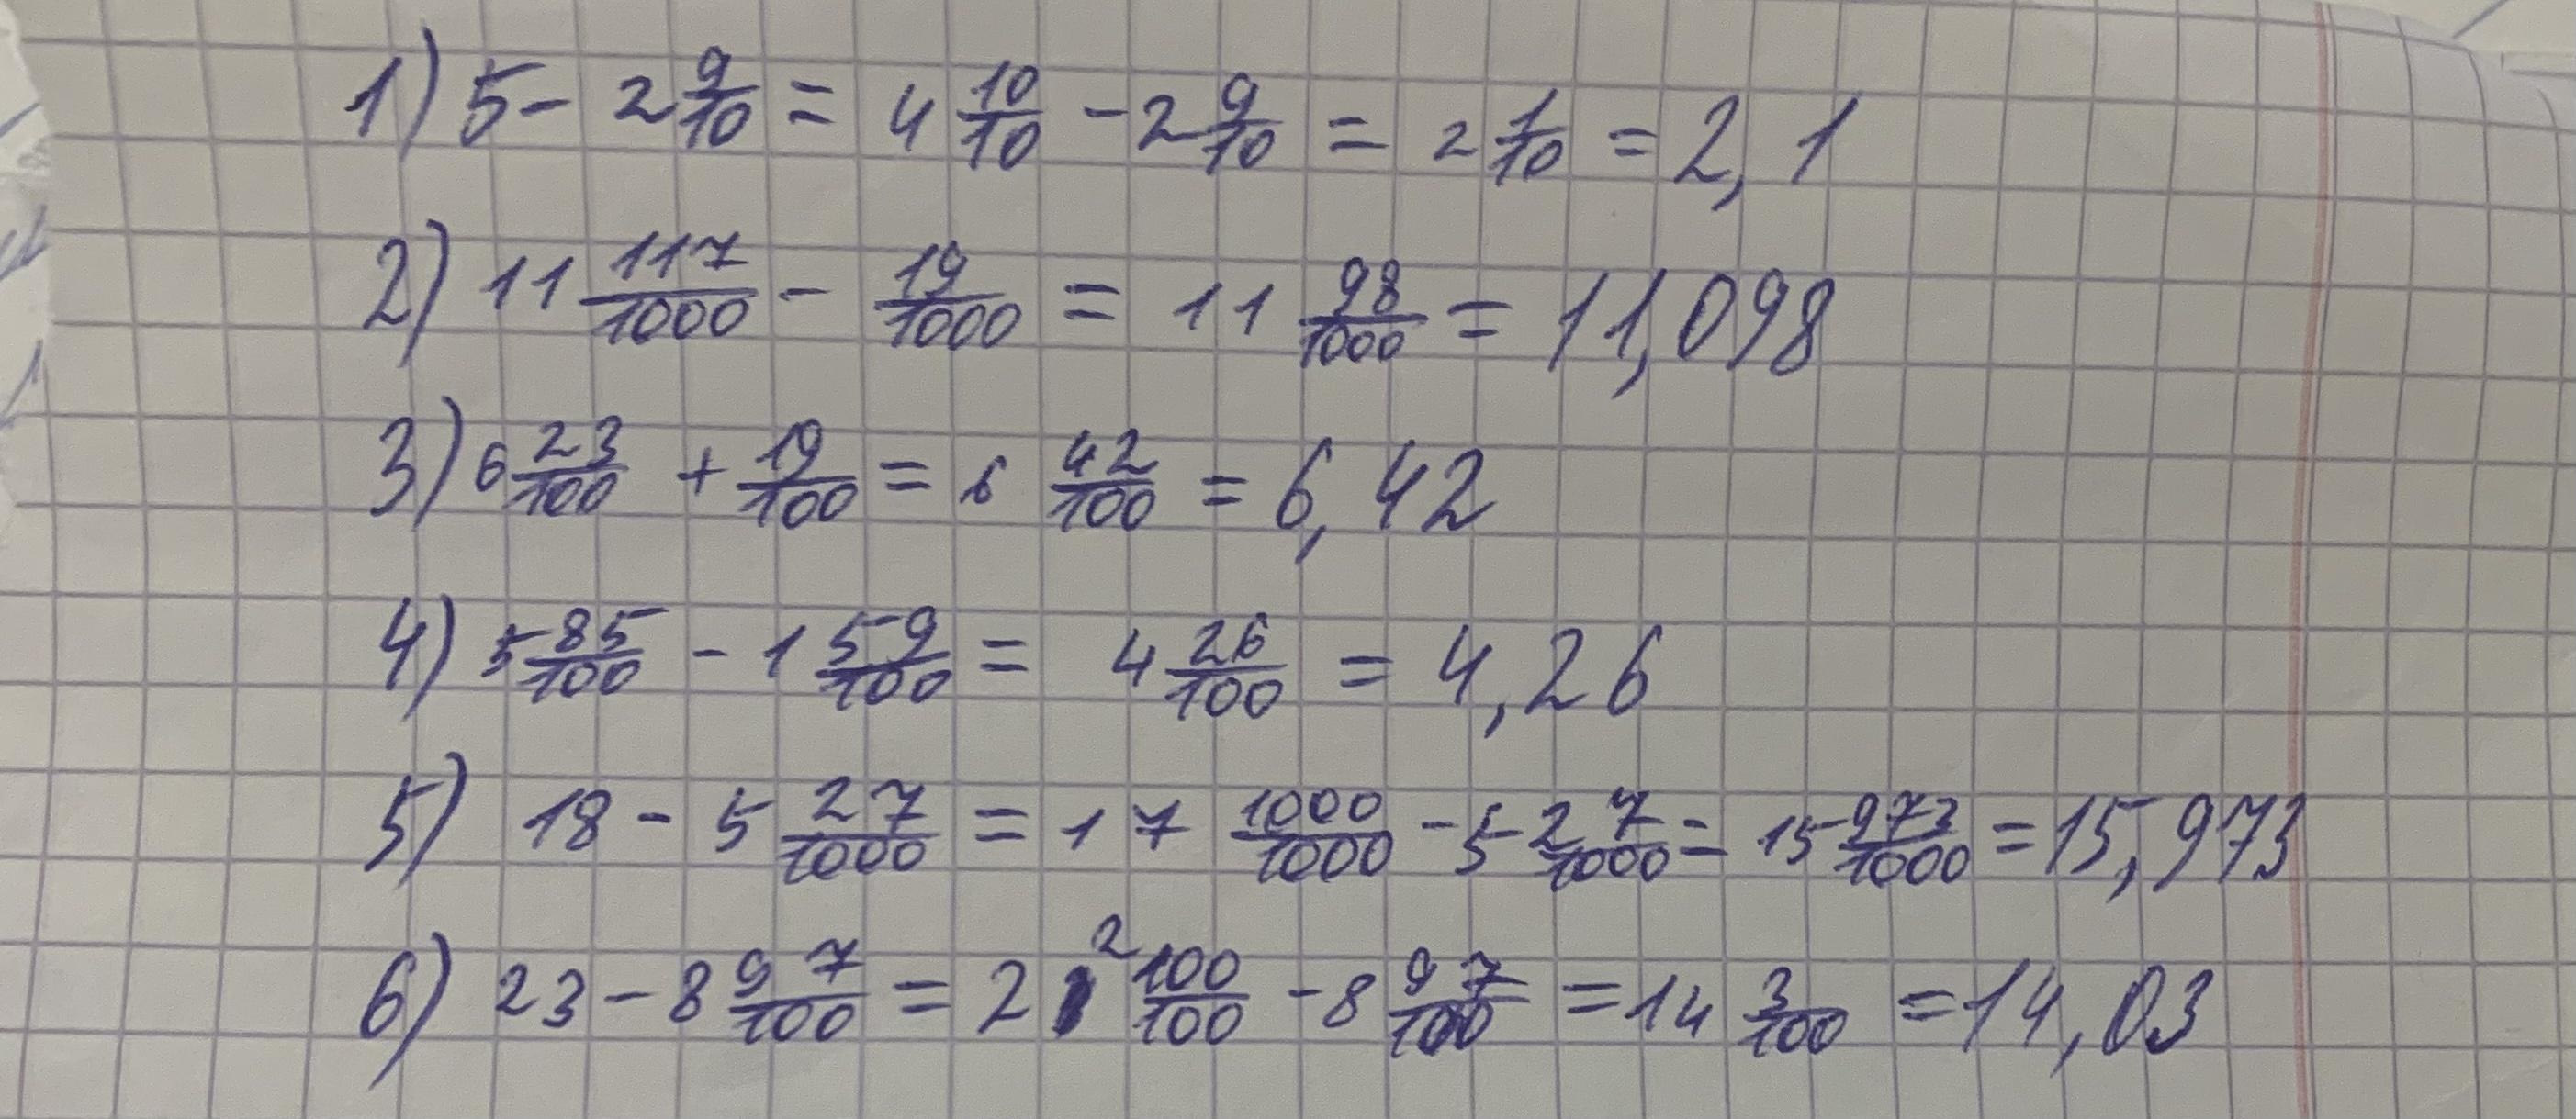 1) 5 - 2 9/10 = 4 10/10 - 2 9/10 = 2 1/10 = 2,1
2) 11 117/1000 - 19/1000 = 11 98/1000 = 11,098
3) 6 23/100 + 19/100 = 6 42/100 = 6,42
4) 5 85/100 - 1 59/100 = 4 26/100 = 4,26
5) 18 - 5 27/1000 = 17 1000/1000 - 5 27/1000 = 15 973/1000 = 15,973
6) 23 - 8 97/100 = 22 100/100 - 8 97/100 = 14 3/100 = 14,03